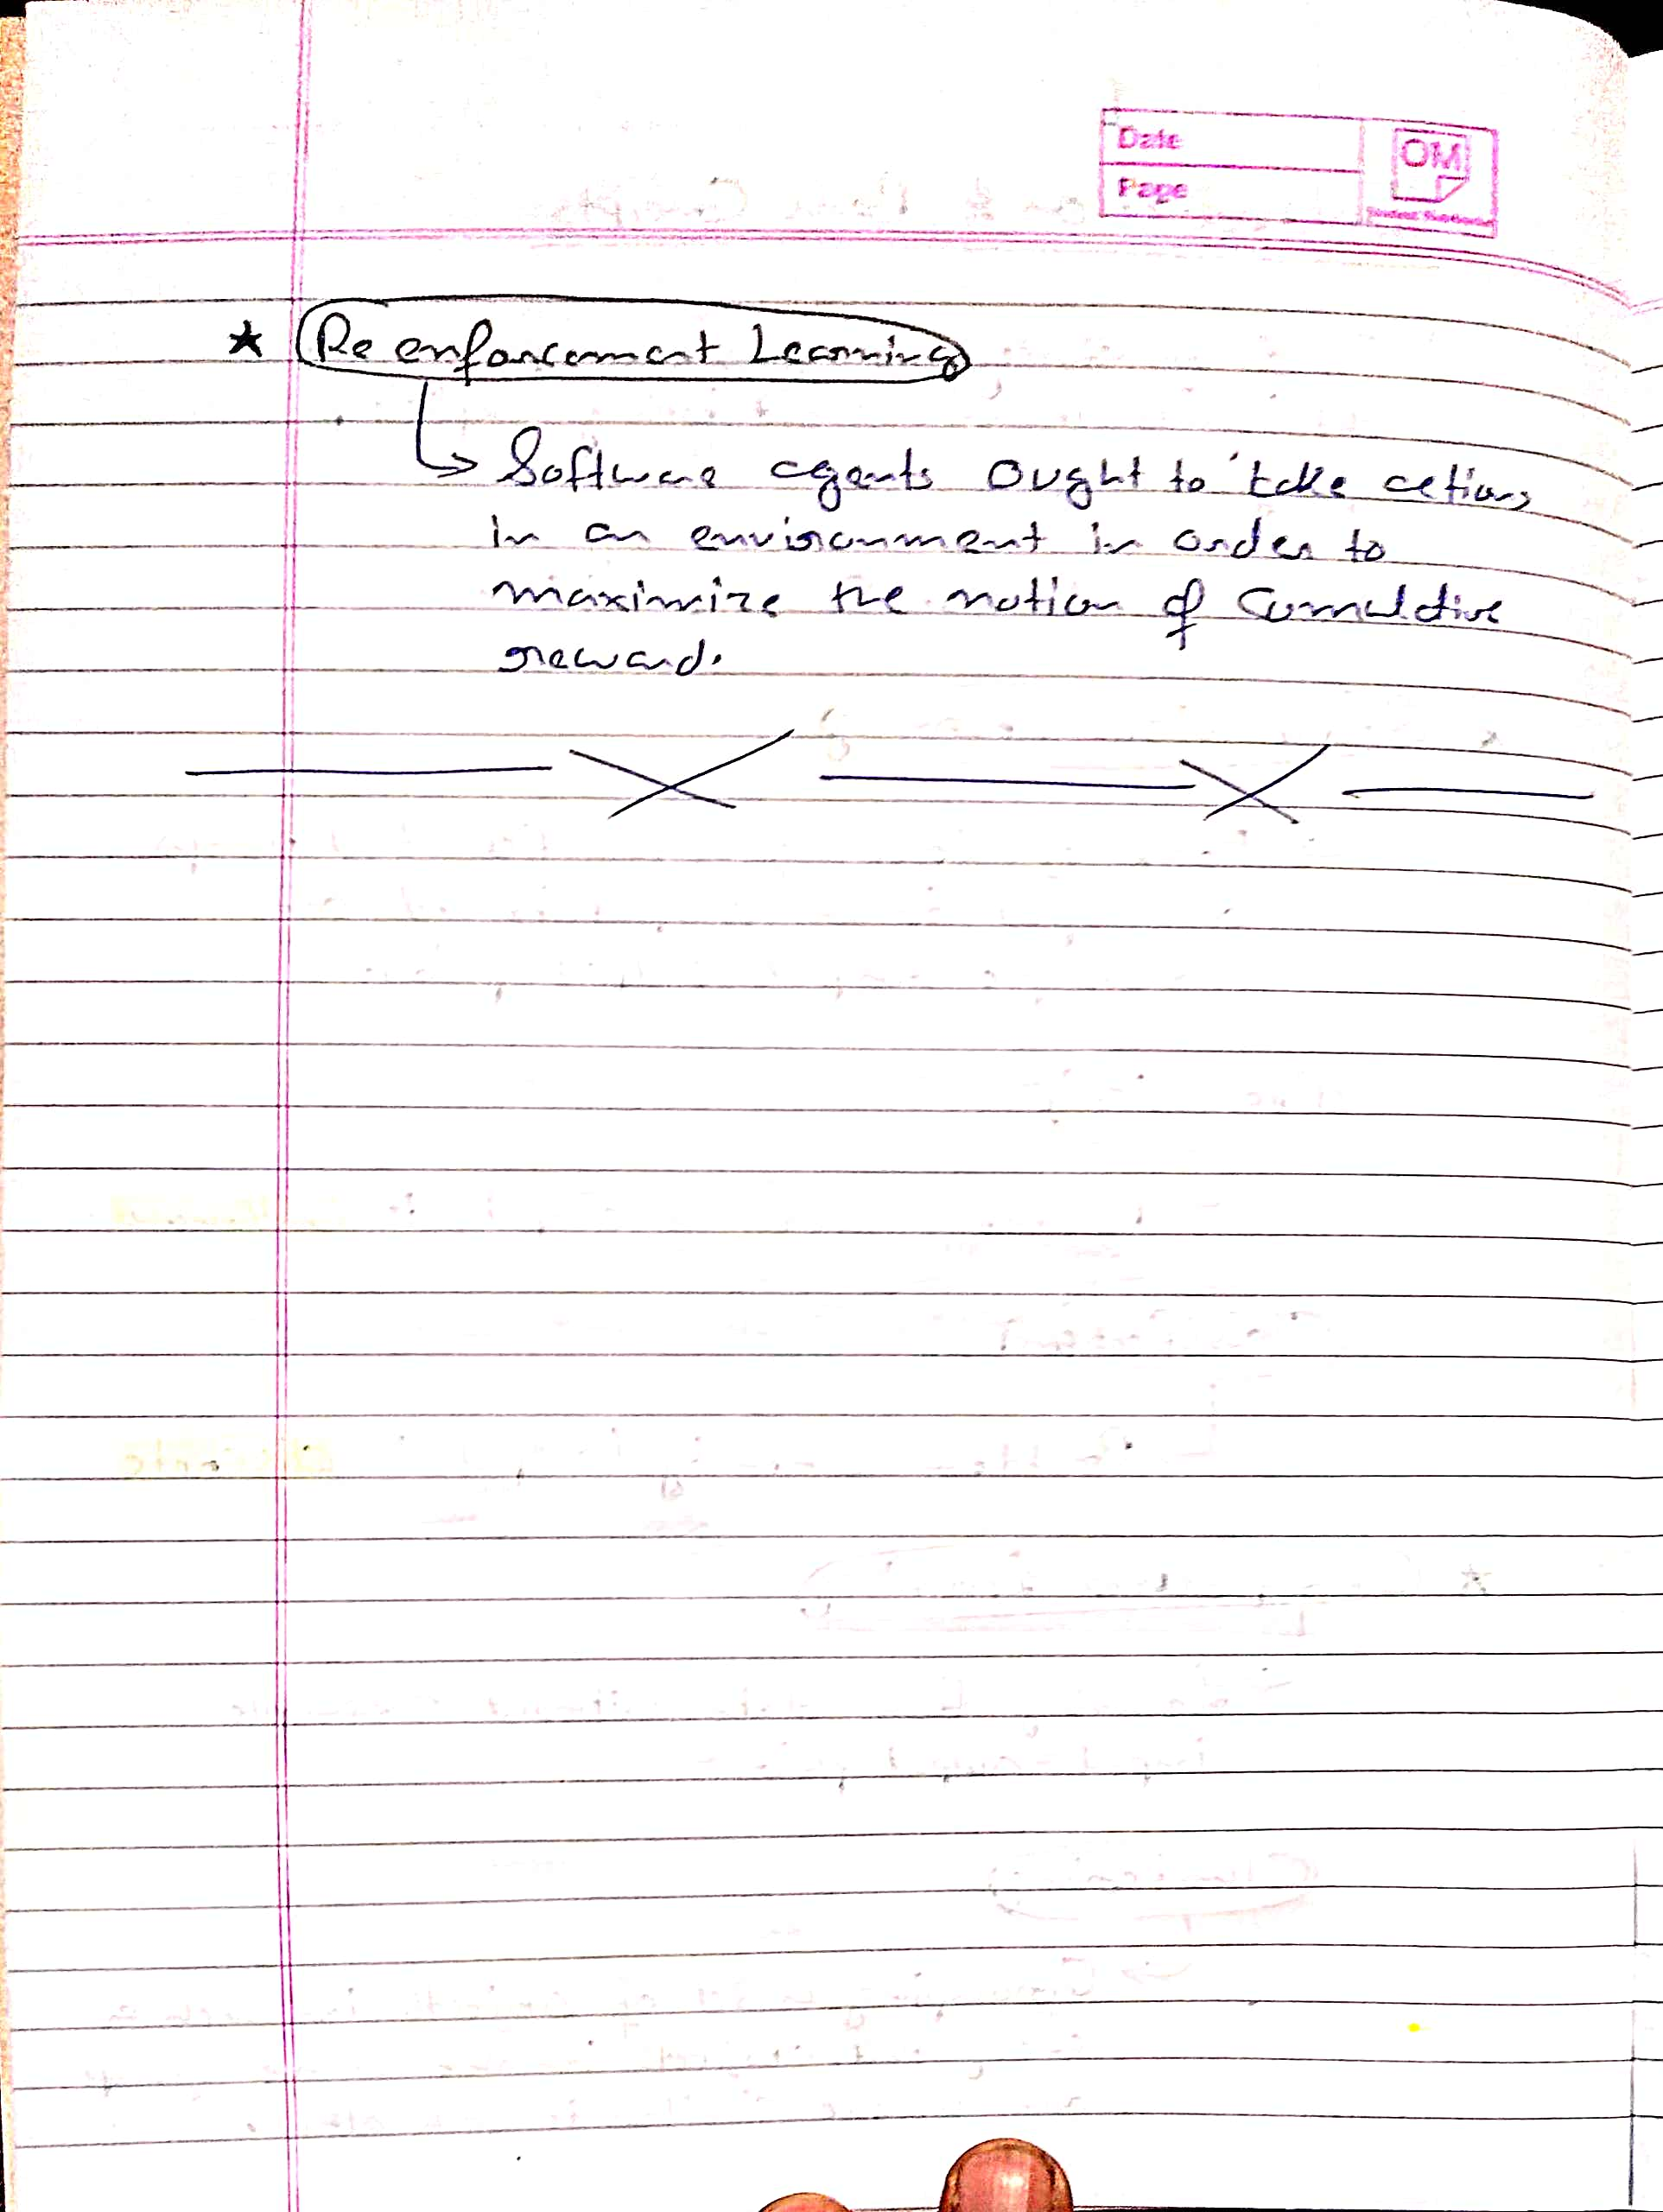 Date
Page
OM
★ Reenforcement Learning
↳ Software agents ought to take actions
in an environment in order to
maximize the notion of Cumulative
reward.